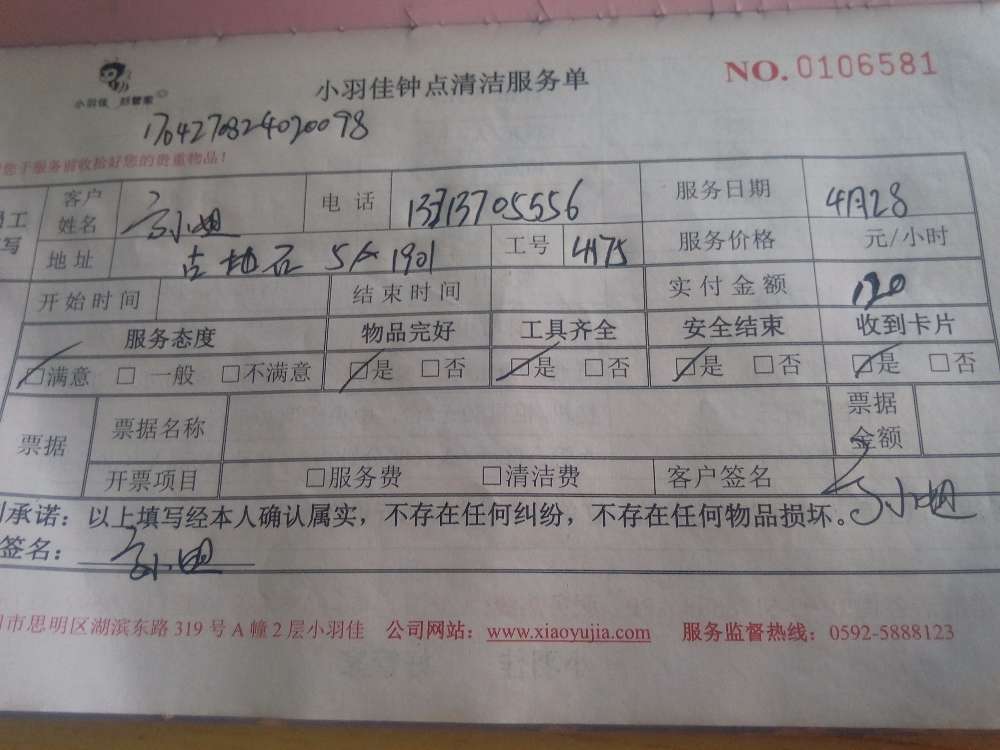 小羽佳 好管家
小羽佳钟点清洁服务单
NO. 0106581
1704270824020098
您于服务前收拾好您的贵重物品!
客户姓名 小姐 电话 服务日期 4月28
地址 古地石 1901 工号 4175 服务价格 元/小时
开始时间 结束时间 实付金额 120
服务态度 物品完好 工具齐全 安全结束 收到卡片
□满意 □一般 □不满意 □是 □否 □是 □否 □是 □否 □是 □否
票据 票据名称 票据金额
开票项目 □服务费 □清洁费 客户签名 小姐
承诺:以上填写经本人确认属实,不存在任何纠纷,不存在任何物品损坏。
签名: 小姐
市思明区湖滨东路 319 号 A 幢 2 层小羽佳 公司网站:www.xiaoyujia.com 服务监督热线:0592-5888123